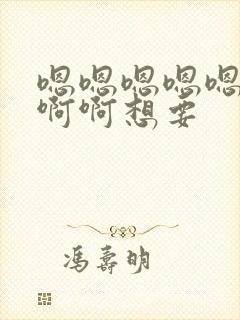 嗯嗯嗯嗯嗯
啊啊想要
冯寿明